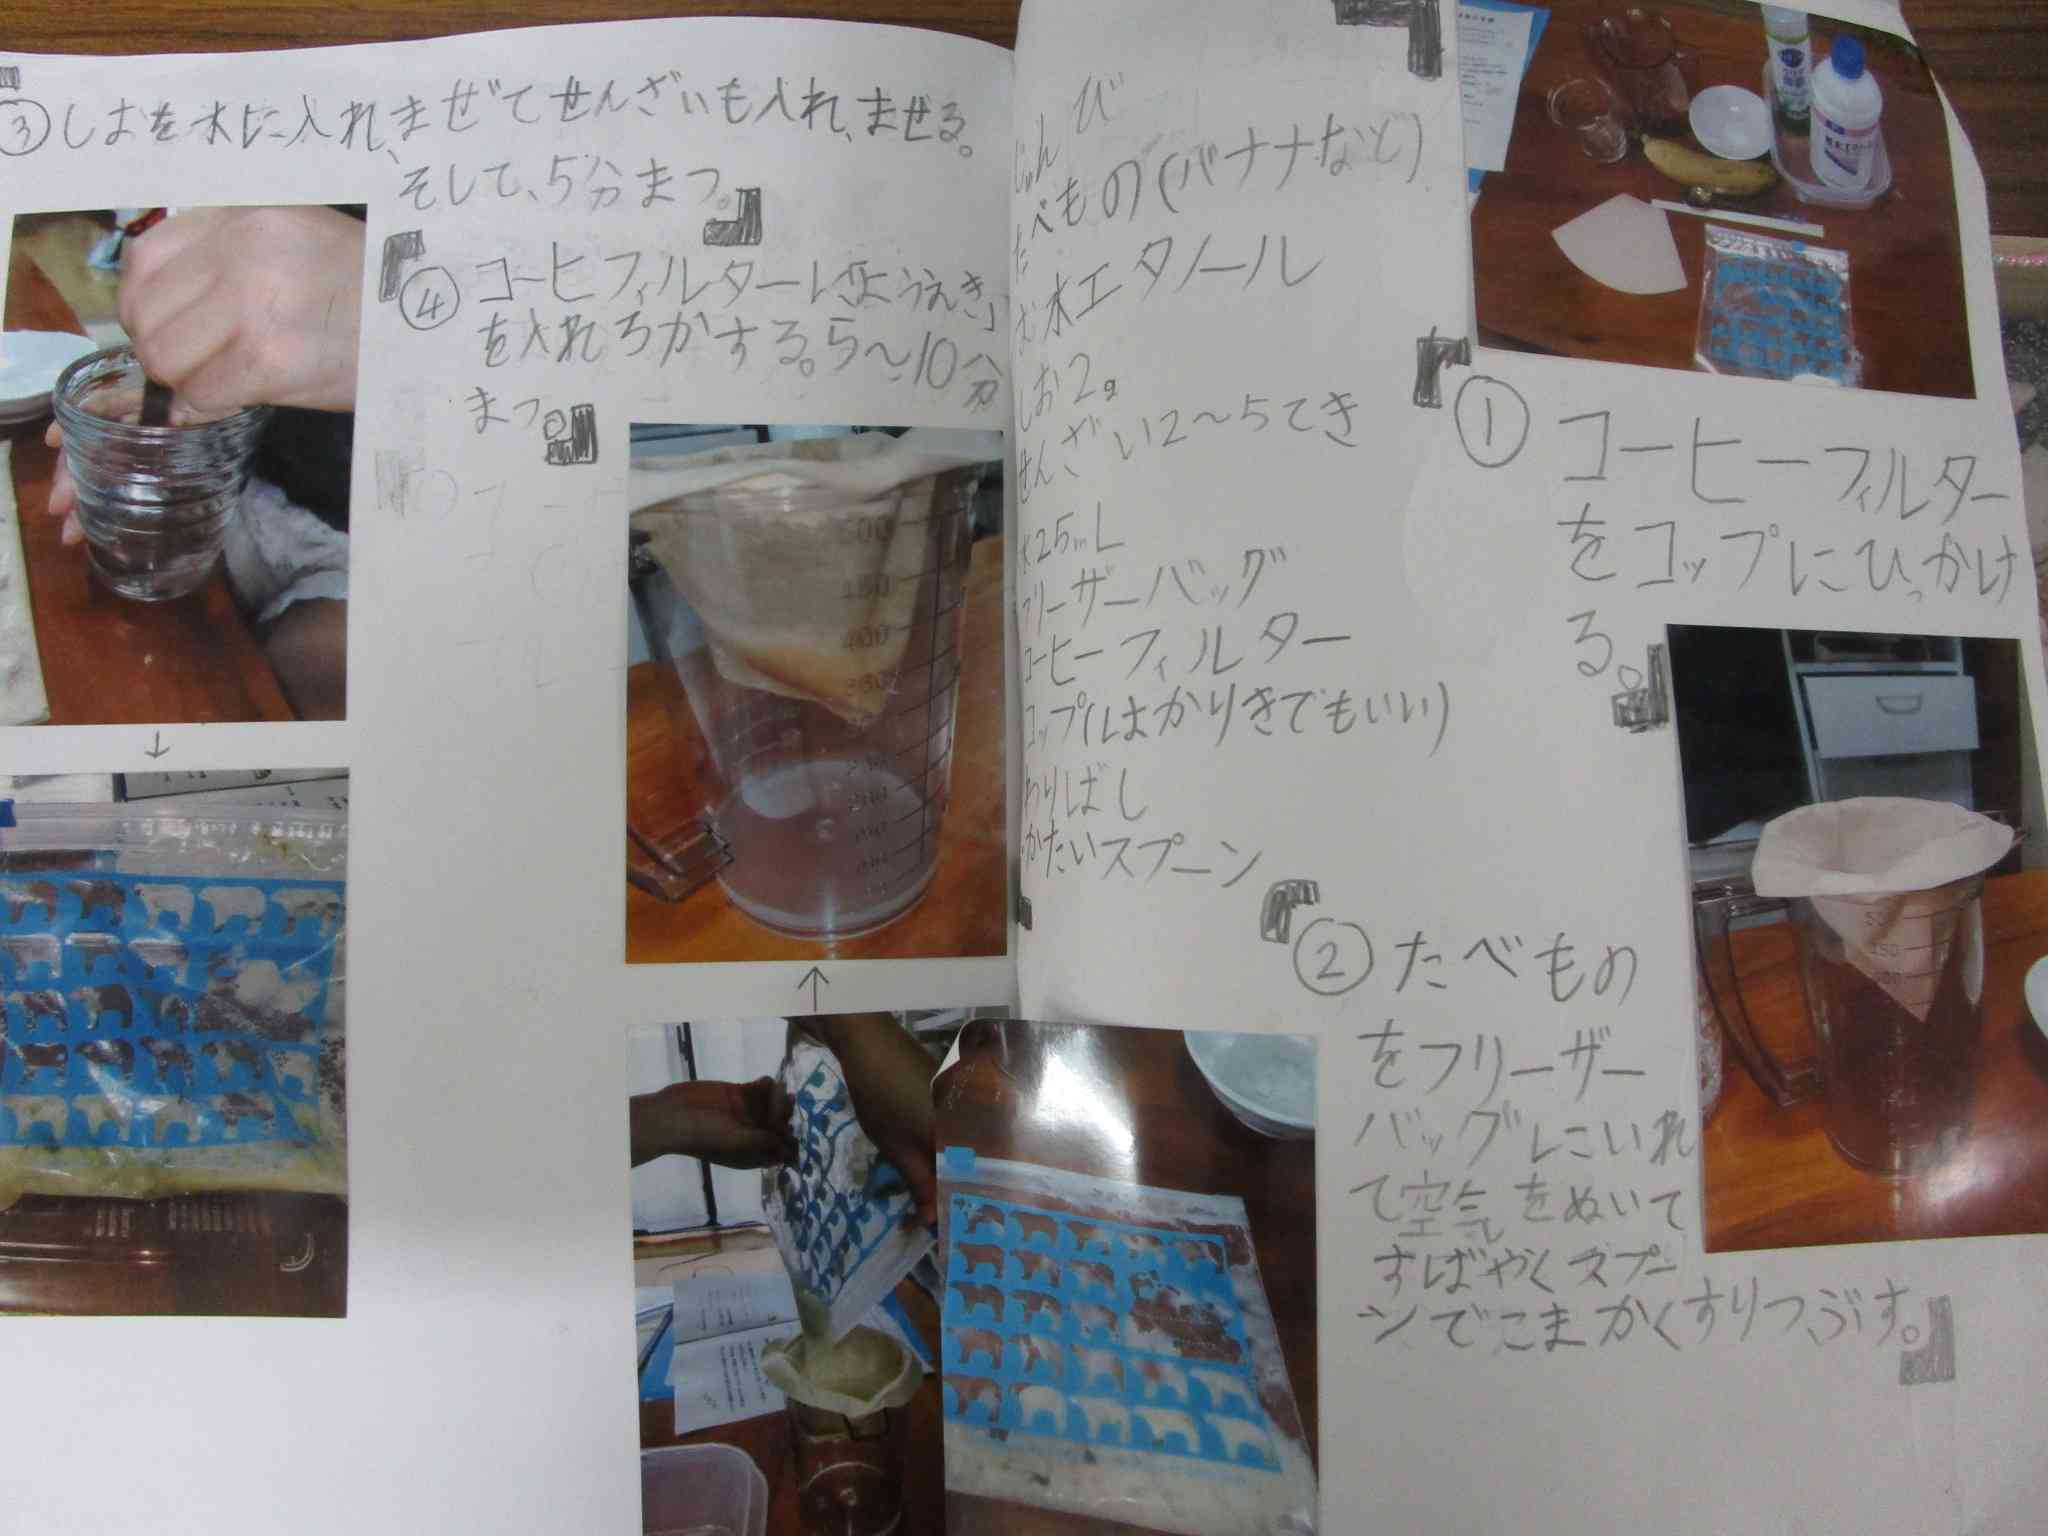 じゅんび
たべもの(バナナなど)
む水エタノール
しお2g
せんざい2〜5てき
水25mL
フリーザーバッグ
コーヒーフィルター
コップ(はかりきでもいい)
わりばし
かたいスプーン
① コーヒーフィルター
をコップにひっかけ
る。
② たべもの
をフリーザー
バッグにいれ
て空気をぬいて
すばやくスプー
ンでこまかくすりつぶす。
③ しおを水に入れ、まぜてせんざいも入れ、ませる。
そして、5分まつ。
↓
④ コーヒフィルターに「ようえき」
を入れろかする。5〜10分
まつ。
↑
500
450
400